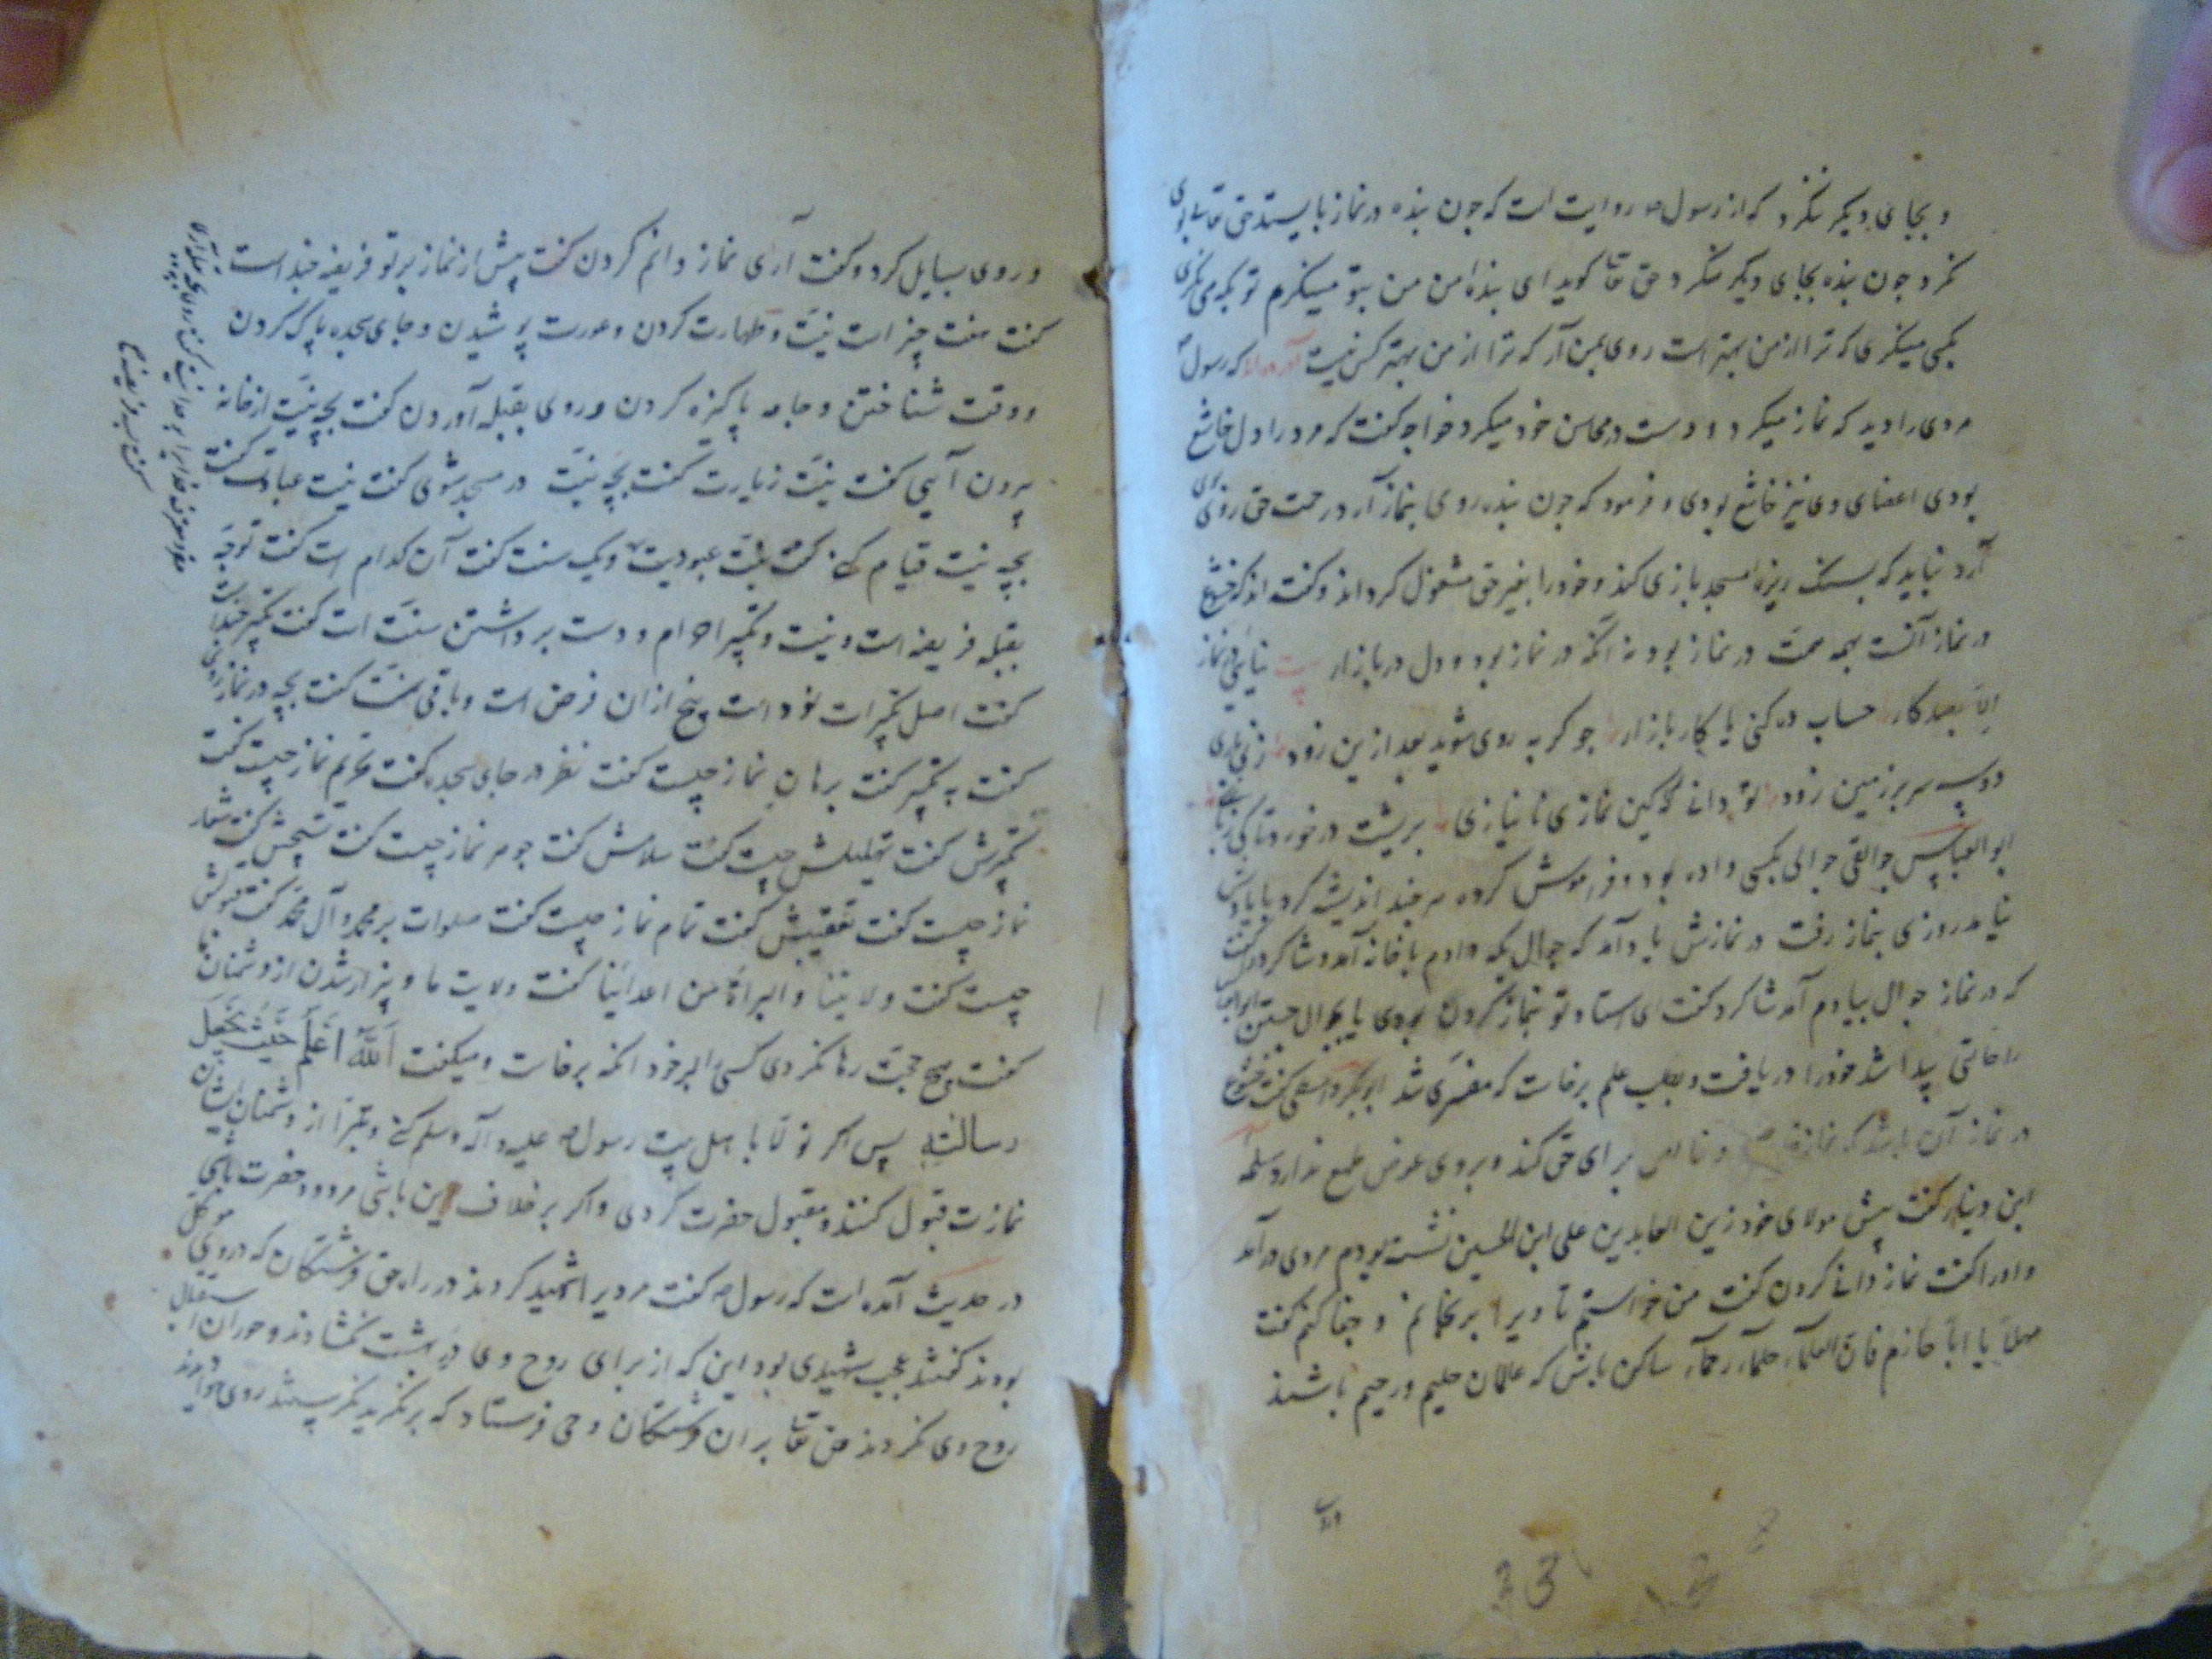 و بجای دیگر ننگرد که از رسول ص روایت است که چون بنده در نماز بایستد حق تعالی بوی
نکرد چون بنده بجای دیگر نگرد حق تعا گوید ای بندهٔ من من بتو مینگرم تو بکه می نگری
بکسی مینگری که ترا از من بهتر است روی بمن آر که ترا از من بهتر کس نیست آورده اند که رسول ص
مردی را دید که نماز میکرد و دست در محاسن خود میکرد خواجه گفت که مرد را دل خاشع
بودی اعضای وی نیز خاشع بودی و فرمود که چون بنده روی بنماز آرد رحمت حق روی بوی
آرد نباید که بسنک ریزهٔ مسجد بازی کند و خود را بغیر حق مشغول گرداند و گفته اند که خشوع
در نماز آنست بهمه همت در نماز بود نه آنکه در نماز بود و دل در بازار بیت نیایی در نماز
الا بصد کار حساب ده کنی یا کار بازار چو گربه روی شویی بعد ازین زود زنی باری
دو سه سر بر زمین زود تو دانی کین نمازی نا نیازی
ابو العباس جوالقی جوالی بکسی داده بود و فراموش کرده هر چند اندیشه کرد با یادش
نیامد روزی بنماز رفت در نمازش یاد آمد که جوال بکه دادم با خانه آمد و شاگرد را گفت
که در نماز جوال بیادم آمد شاگرد گفت ای استاد تو بنماز کردن بودی یا بجوال جستن ابو العباس
را حالتی پیدا شد خود را دریافت و بطلب علم برخاست که مفسری شد ابوبکر واسطی گفت خشوع
در نماز آن باشد که نماز خالص برای حق کند و بر وی عوض طمع ندارد سلمه
ابن دینار گفت پیش مولای خود زین العابدین علی ابن الحسین نشسته بودم مردی درآمد
و او را گفت نماز دانی کردن گفت من خواستم تا ویرا برنجانم و جفا کنم گفت
مهلا یا ابا حازم فان العلمآء حلمآء رحمآء ساکن باش که عالمان حلیم و رحیم باشند
و روی
و روی بسایل کرد و گفت آری نماز دانم کردن گفت پیش از نماز بر تو فریضه چند است
گفت هفت چیز است نیت و طهارت کردن و عورت پوشیدن و جای سجده پاک کردن
و وقت شناختن و جامه پاکیزه کردن و روی بقبله آوردن گفت بچه نیت از خانه
بیرون آیی گفت نیت زیارت گفت بچه نیت در مسجد شوی گفت نیت عبادت گفت
بچه نیت قیام کنی گفت نیت عبودیت و یک سنت گفت آن کدام است گفت توجه
بقبله فریضه است و نیت و تکبیر احرام و دست برداشتن سنت است گفت تکبیر چند است
گفت اصل تکبیرات نود است پنج ازان فرض است و باقی سنت گفت بچه در نماز روی
گفت به تکبیر گفت برهان نماز چیست گفت نظر در جای سجده گفت تحریم نماز چیست گفت
تکبیرش گفت تهلیلش چیست گفت سلامش گفت جوهر نماز چیست گفت تسبیحش گفت شعار
نماز چیست گفت تعقیبش گفت تمام نماز چیست گفت صلوات بر محمد و آل محمد گفت قبولش
چیست گفت ولایتنا و البراة من اعدائنا گفت ولایت ما و بیزار شدن از دشمنان ما
گفت هیچ حجت رها نکردی کسی را بر خود آنگه برخاست و میگفت اَللّٰهُ اَعْلَمُ حَیْثُ یَجْعَلُ
رسالته پس اگر تولا با اهل بیت رسول ص علیه و آله و سلم کنی و تبرا از دشمنان ایشان
نمازت قبول کنند و مقبول حضرت گردی و اگر بر خلاف این باشی مردود حضرت باشی
در حدیث آمده است که رسول ص گفت مردیرا شهید کردند در راه حق فرشتگان که بر وی موکل
بودند گفتند عجب شهیدی بود این که از برای روح وی در بهشت نگشادند و حوران استقبال
روح وی نکردند حق تعا بران فرشتگان وحی فرستاد که بر نگرید نگریستند روی هوا دیدند
23